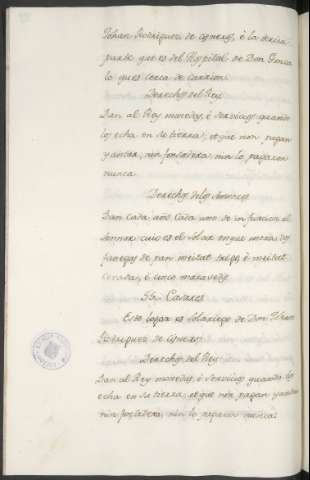 Johan Rodriguez de Cisneros, è la tercia
parte que es del Hospital de Don Gonza
lo ques cerca de Carrion.
Derechos del Rey
Dan al Rey moneda, è servicios quando
los echa en su tierra, et que non pagan
yantar, nin fonsadera, nin lo pagaron
nunca.
Derechos de los Sennores
Dan cada año cada uno de infurcion al
Sennor cuio es el solar en que mora dos
fanegas de pan meitat trigo è meitat
cevada, è cinco maravedis
Casares
Este logar es solariego de Don Johan
Rodriguez de Cisneros.
Derechos del Rey
Dan al Rey moneda, è servicios quando los
echa en su tierra, et que non pagan yantar
nin fonsadera, nin lo pagaron nunca.